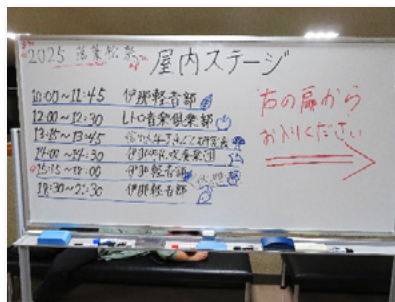 2025 落葉松祭
屋内ステージ
10:00～11:45 伊那軽音部
12:00～12:30 レトロ音楽倶楽部
13:15～13:45
14:00～14:30 伊那北吹奏楽団
15:15～18:00 伊那軽音部
18:30～21:30 伊那軽音部
右の扉から
お入りください